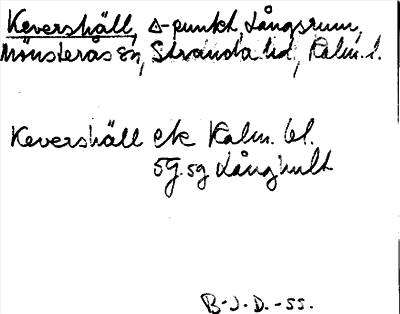 Kevershäll, Δ-punkt, Långsrum,
Mönsterås sn, Stranda hd, Kalm. l.
Kevershäll ek Kalm. bl.
5g. 59 Långhult
B-J.D.-55.